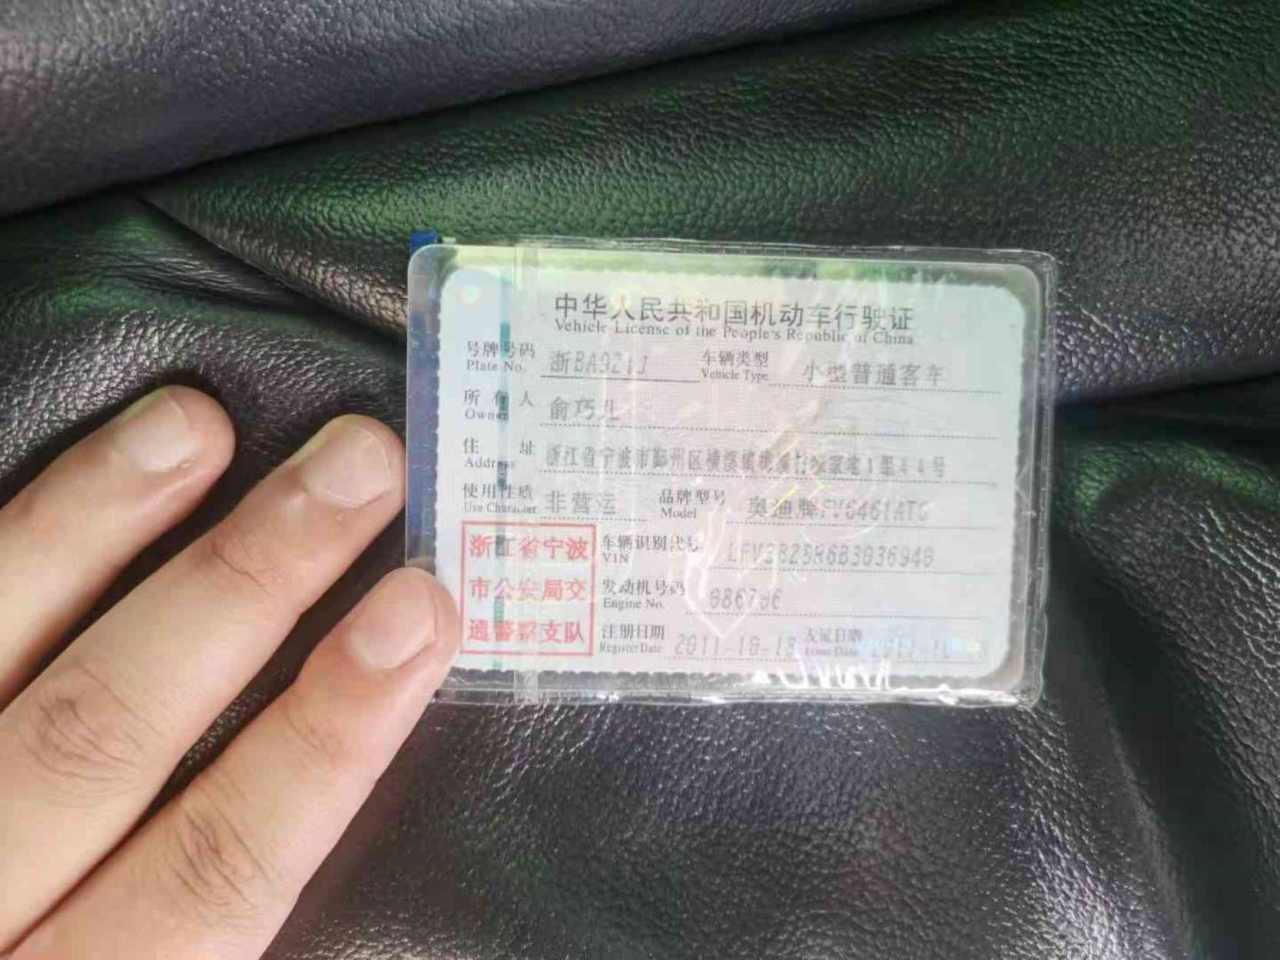 中华人民共和国机动车行驶证
Vehicle License of the People's Republic of China
号牌号码 浙BA9Z1J 车辆类型 小型普通客车
Plate No. Vehicle Type
所有人 俞巧儿
Owner
住址 浙江省宁波市鄞州区横溪镇
Address
使用性质 非营运 品牌型号 奥迪牌FV6461ATG
Use Character Model
浙江省宁波 车辆识别代号
VIN
市公安局交 发动机号码
Engine No.
通警察支队 注册日期 2011-10-18 发证日期
Register Date Issue Date